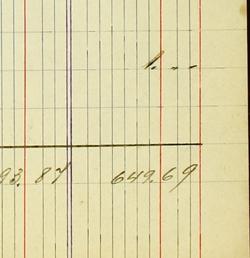 1. - -
93.87 649.69